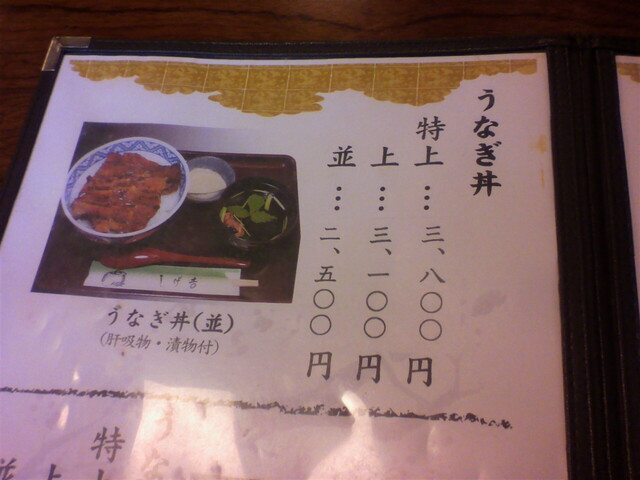 うなぎ丼
特上…三、八〇〇円
上…三、一〇〇円
並…二、五〇〇円
うなぎ丼(並)
(肝吸物・漬物付)
特
上
並